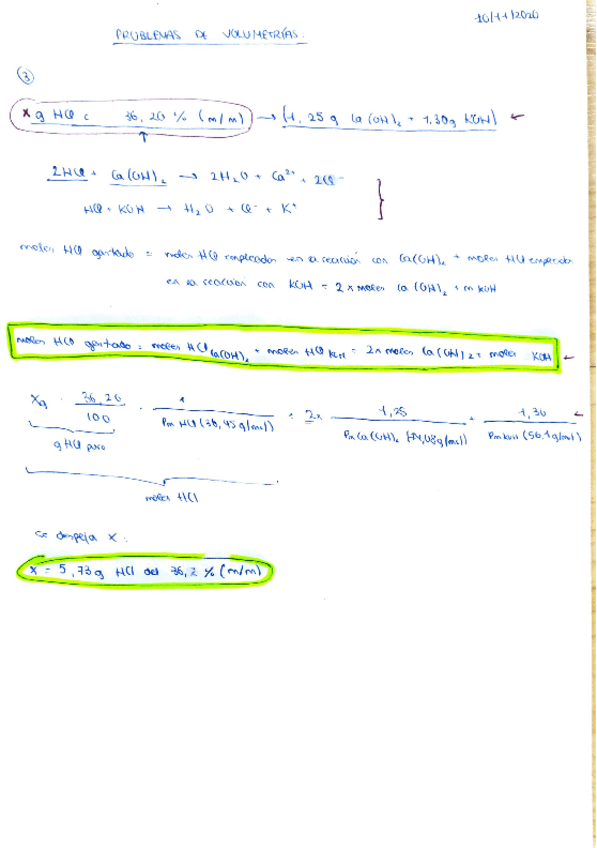 16/11/2020
PROBLEMAS DE VOLUMETRÍAS.
③
x g HCl c 36,20 % (m/m) → (1,25 g Ca(OH)₂ + 1,30g KOH) ←
↑
2HCl + Ca(OH)₂ → 2H₂O + Ca²⁺ + 2Cl⁻
HCl + KOH → H₂O + Cl⁻ + K⁺
moles HCl gastado = moles HCl empleados en la reacción con Ca(OH)₂ + moles HCl empleados
en la reacción con KOH = 2 x moles Ca(OH)₂ + m KOH
moles HCl gastado = moles HCl Ca(OH)₂ + moles HCl KOH = 2x moles Ca(OH)2 + moles KOH ←
xg · 36,20/100 · 1/Pm HCl (36,45 g/mol) = 2x 1,25/Pm Ca(OH)₂ (74,08g/mol) + 1,30/Pm KOH (56,1 g/mol) ←
g HCl puro
moles HCl
se despeja x:
x = 5,73g HCl del 36,2 % (m/m)